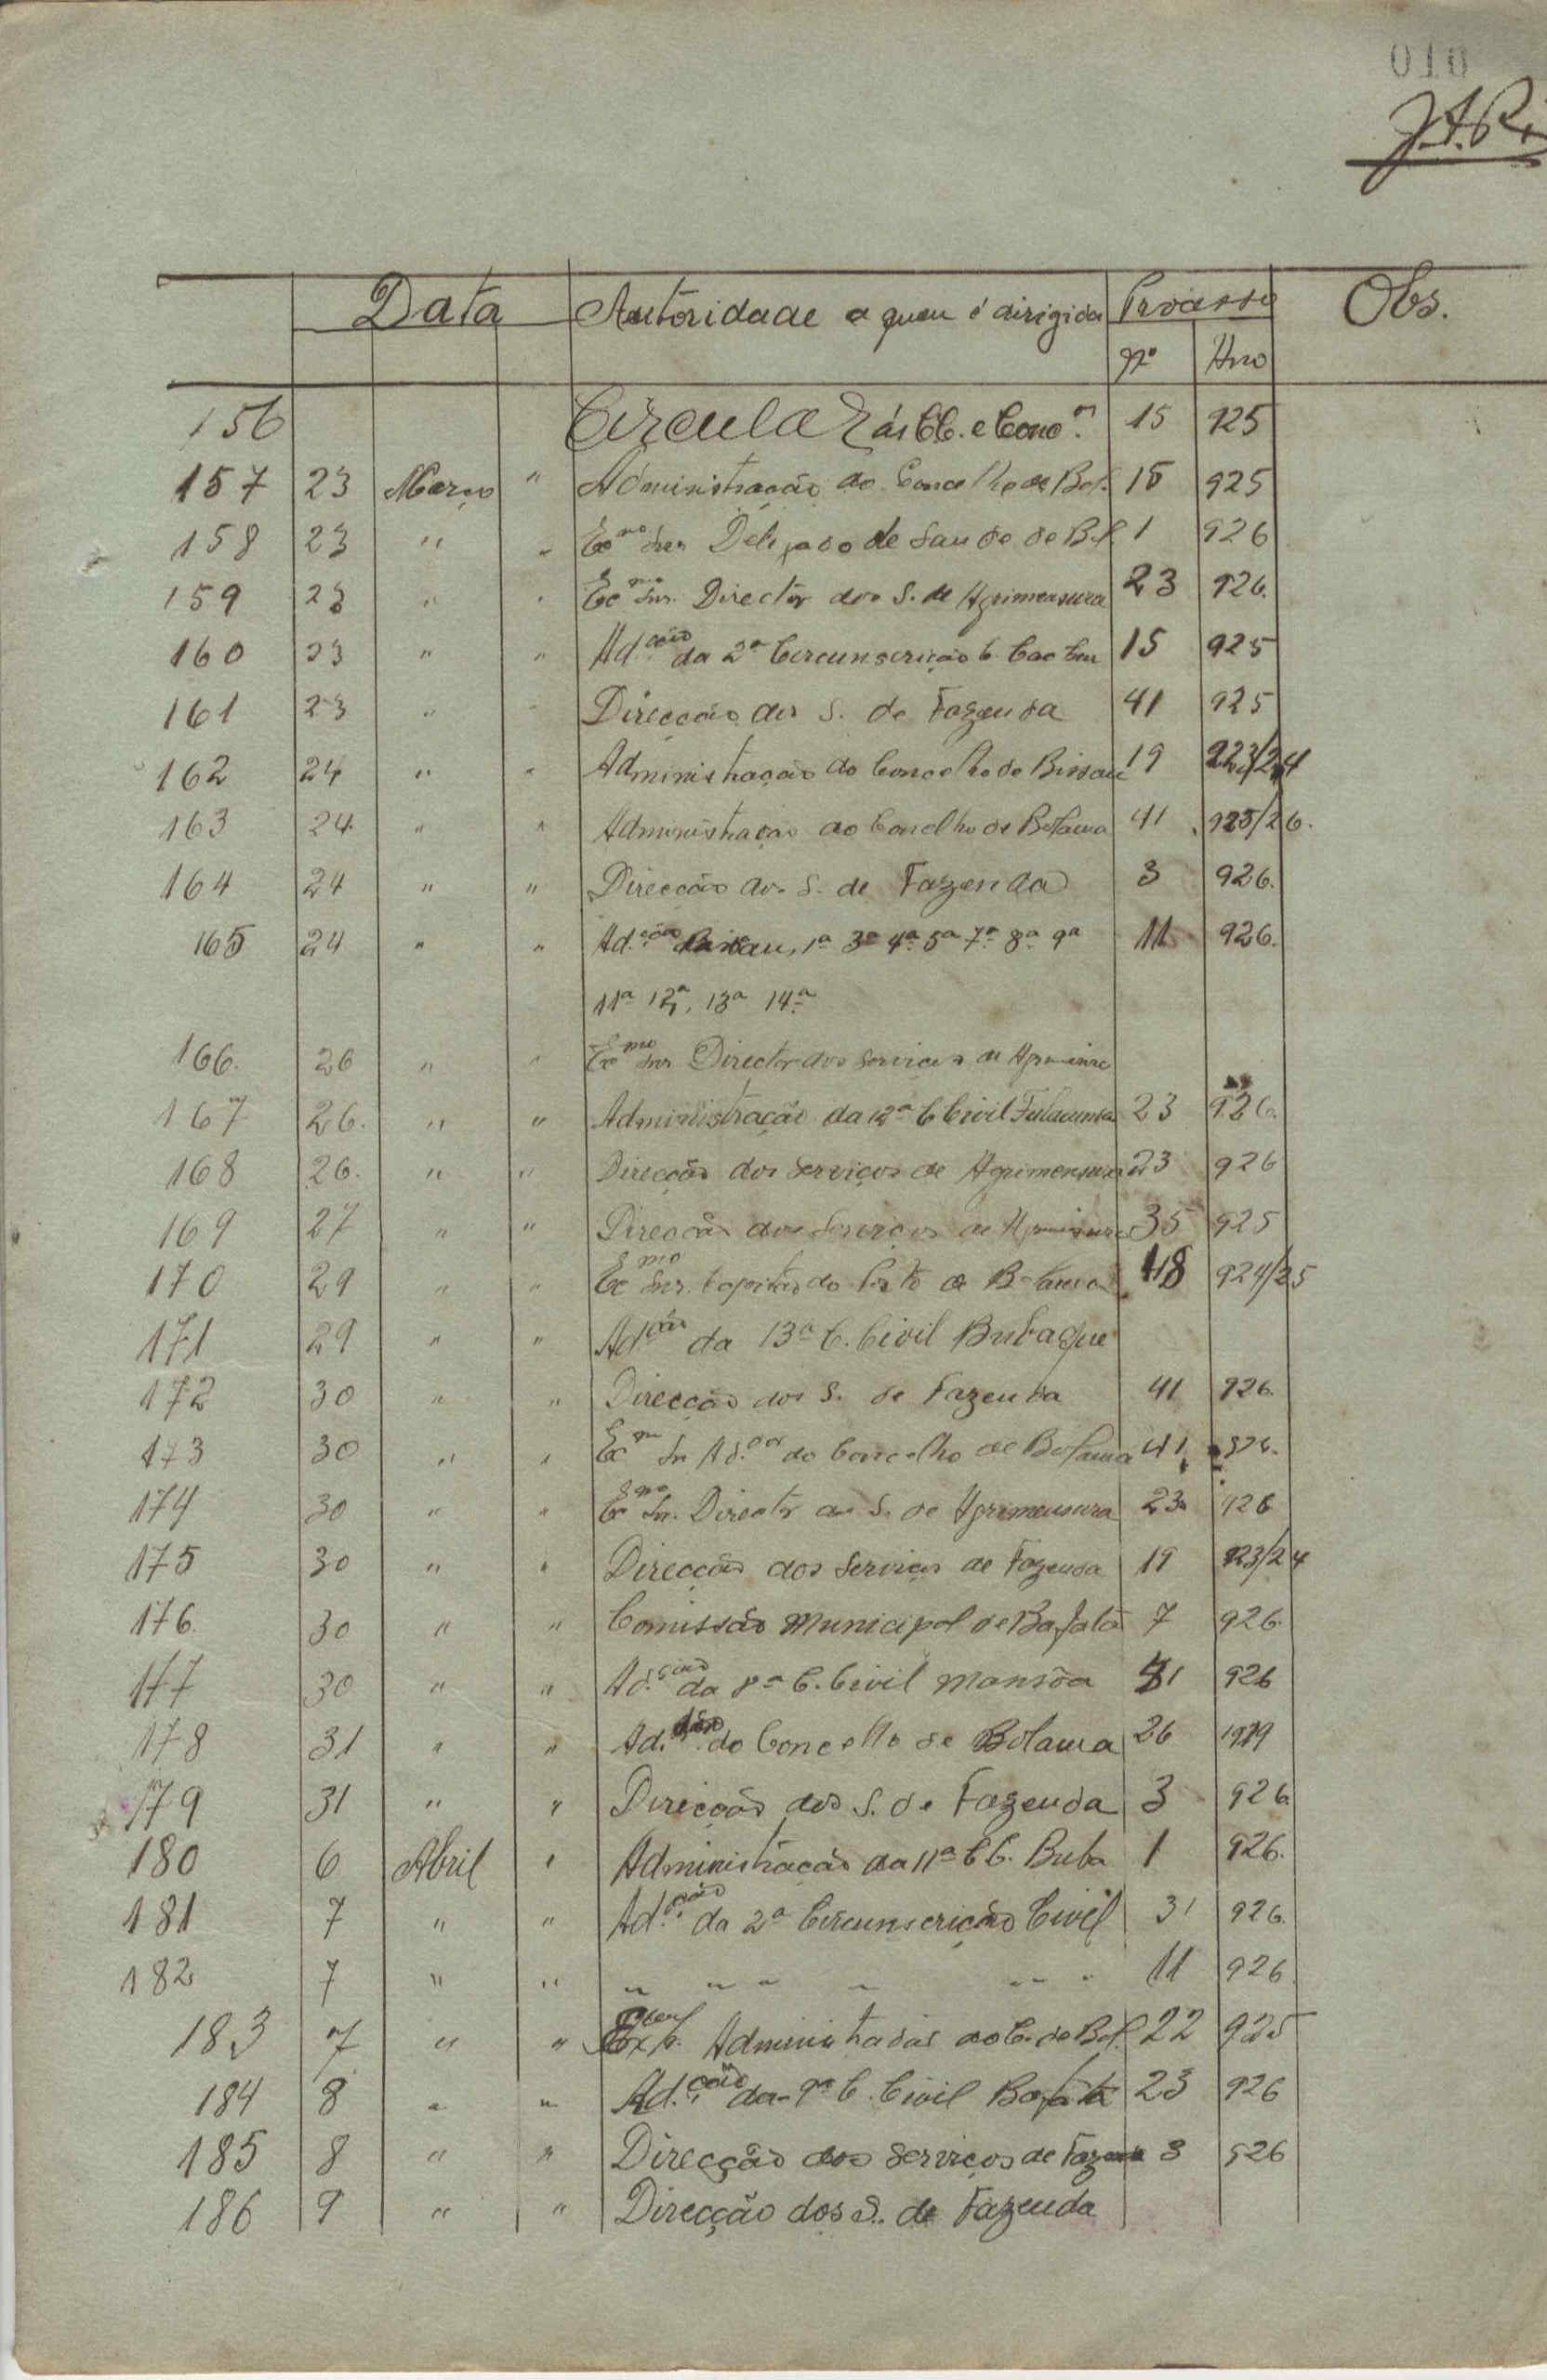 010
J.A.Ri
Data Autoridade a quem é dirigida Processo Obs.
Nº Ano
156 Circular ás CC. e Conc.os 15 925
157 23 Março " Administração do Concelho de Bol. 15 925
158 23 " " Exmo Snr. Delegado de Saude de Bol. 1 926
159 23 " " Exmo Snr. Director dos S. de Agrimensura 23 926.
160 23 " " Ad.ção da 2ª Circunscrição C. Cacheu 15 925
161 23 " " Direcção dos S. de Fazenda 41 925
162 24 " " Administração do Concelho de Bissau 19 923/24
163 24. " " Administração do Concelho de Bolama 41 925/26.
164 24 " " Direcção dos S. de Fazenda 3 926.
165 24 " " Ad.ção Bissau, 1ª 3ª 4ª 5ª 7ª 8ª 9ª 11 926.
11ª 12ª, 13ª 14ª
166. 26 " " Exmo Snr Director dos Serviços de Agrimensura
167 26. " " Administração da 12ª C Civil Fulacunda 23 926.
168 26. " " Direcção dos Serviços de Agrimensura 23 926
169 27 " " Direcção dos Serviços de Agrimensura 35 925
170 29 " " Exmo Snr. Capitão do Porto de Bolama 48 924/25
171 29 " " Adção da 13ª C. Civil Bubaque
172 30 " " Direcção dos S. de Fazenda 41 926.
173 30 " " Exmo Sr Ad.or do Concelho de Bolama 41 926.
174 30 " " Exmo Snr. Director dos S. de Agrimensura 23 926
175 30 " " Direcção dos Serviços de Fazenda 19 923/24
176 30 " " Comissão Municipal de Bafatá 7 926.
177 30 " " Ad.ção da 8ª C. Civil Mansôa 31 926
178 31 " " Ad.ção do Concelho de Bolama 26 1919
179 31 " " Direcção dos S. de Fazenda 3 926.
180 6 Abril " Administração da 11ª C C. Buba 1 926.
181 7 " " Ad.ção da 2ª Circunscrição Civil 31 926.
182 7 " " " " " " " " " 11 926.
183 7 " " Administração do C. de Bol. 22 925
184 8 " " Ad.ção da 9ª C. Civil Bafatá 23 926
185 8 " " Direcção dos Serviços de Fazenda 3 926
186 9 " " Direcção dos S. de Fazenda